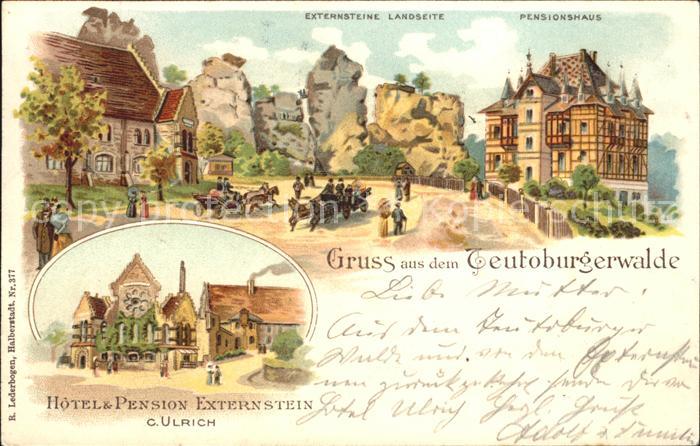 EXTERNSTEINE LANDSEITE
PENSIONSHAUS
Gruss aus dem Teutoburgerwalde
Liebe Mutter!
Aus dem Teutoburger
Walde und von den Externstei
nen zurückgekehrt senden Dir vom
Hotel Ulrich Herzl. Grüße
Adolf u. Familie
HÔTEL & PENSION EXTERNSTEIN
C. ULRICH
R. Lederbogen, Halberstadt. Nr. 377
copyright protection